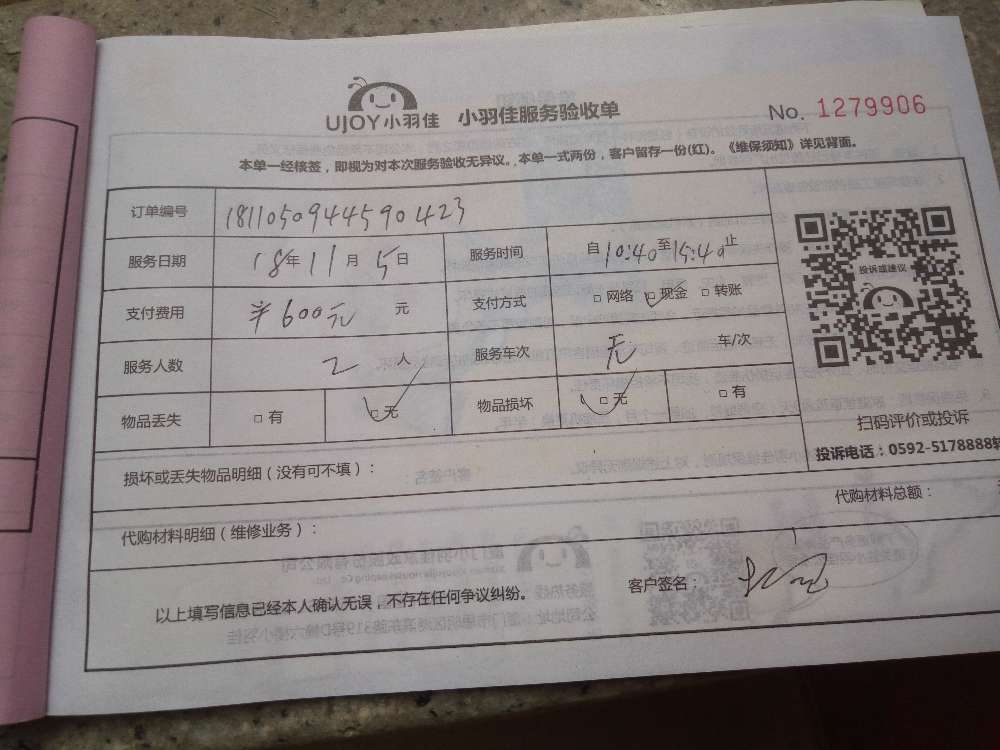 UJOY小羽佳 小羽佳服务验收单 No. 1279906
本单一经核签，即视为对本次服务验收无异议。本单一式两份，客户留存一份(红)。《维保须知》详见背面。
订单编号 1811050944590423
服务日期 18年11月5日 服务时间 自10:40至15:40止
支付费用 ¥600元 元 支付方式 □网络 ☑现金 □转账
服务人数 2 人 服务车次 无 车/次
物品丢失 □有 ☑无 物品损坏 ☑无 □有
投诉或建议
扫码评价或投诉
投诉电话：0592-5178888转
损坏或丢失物品明细（没有可不填）：
代购材料总额：
代购材料明细（维修业务）：
客户签名：
以上填写信息已经本人确认无误，不存在任何争议纠纷。